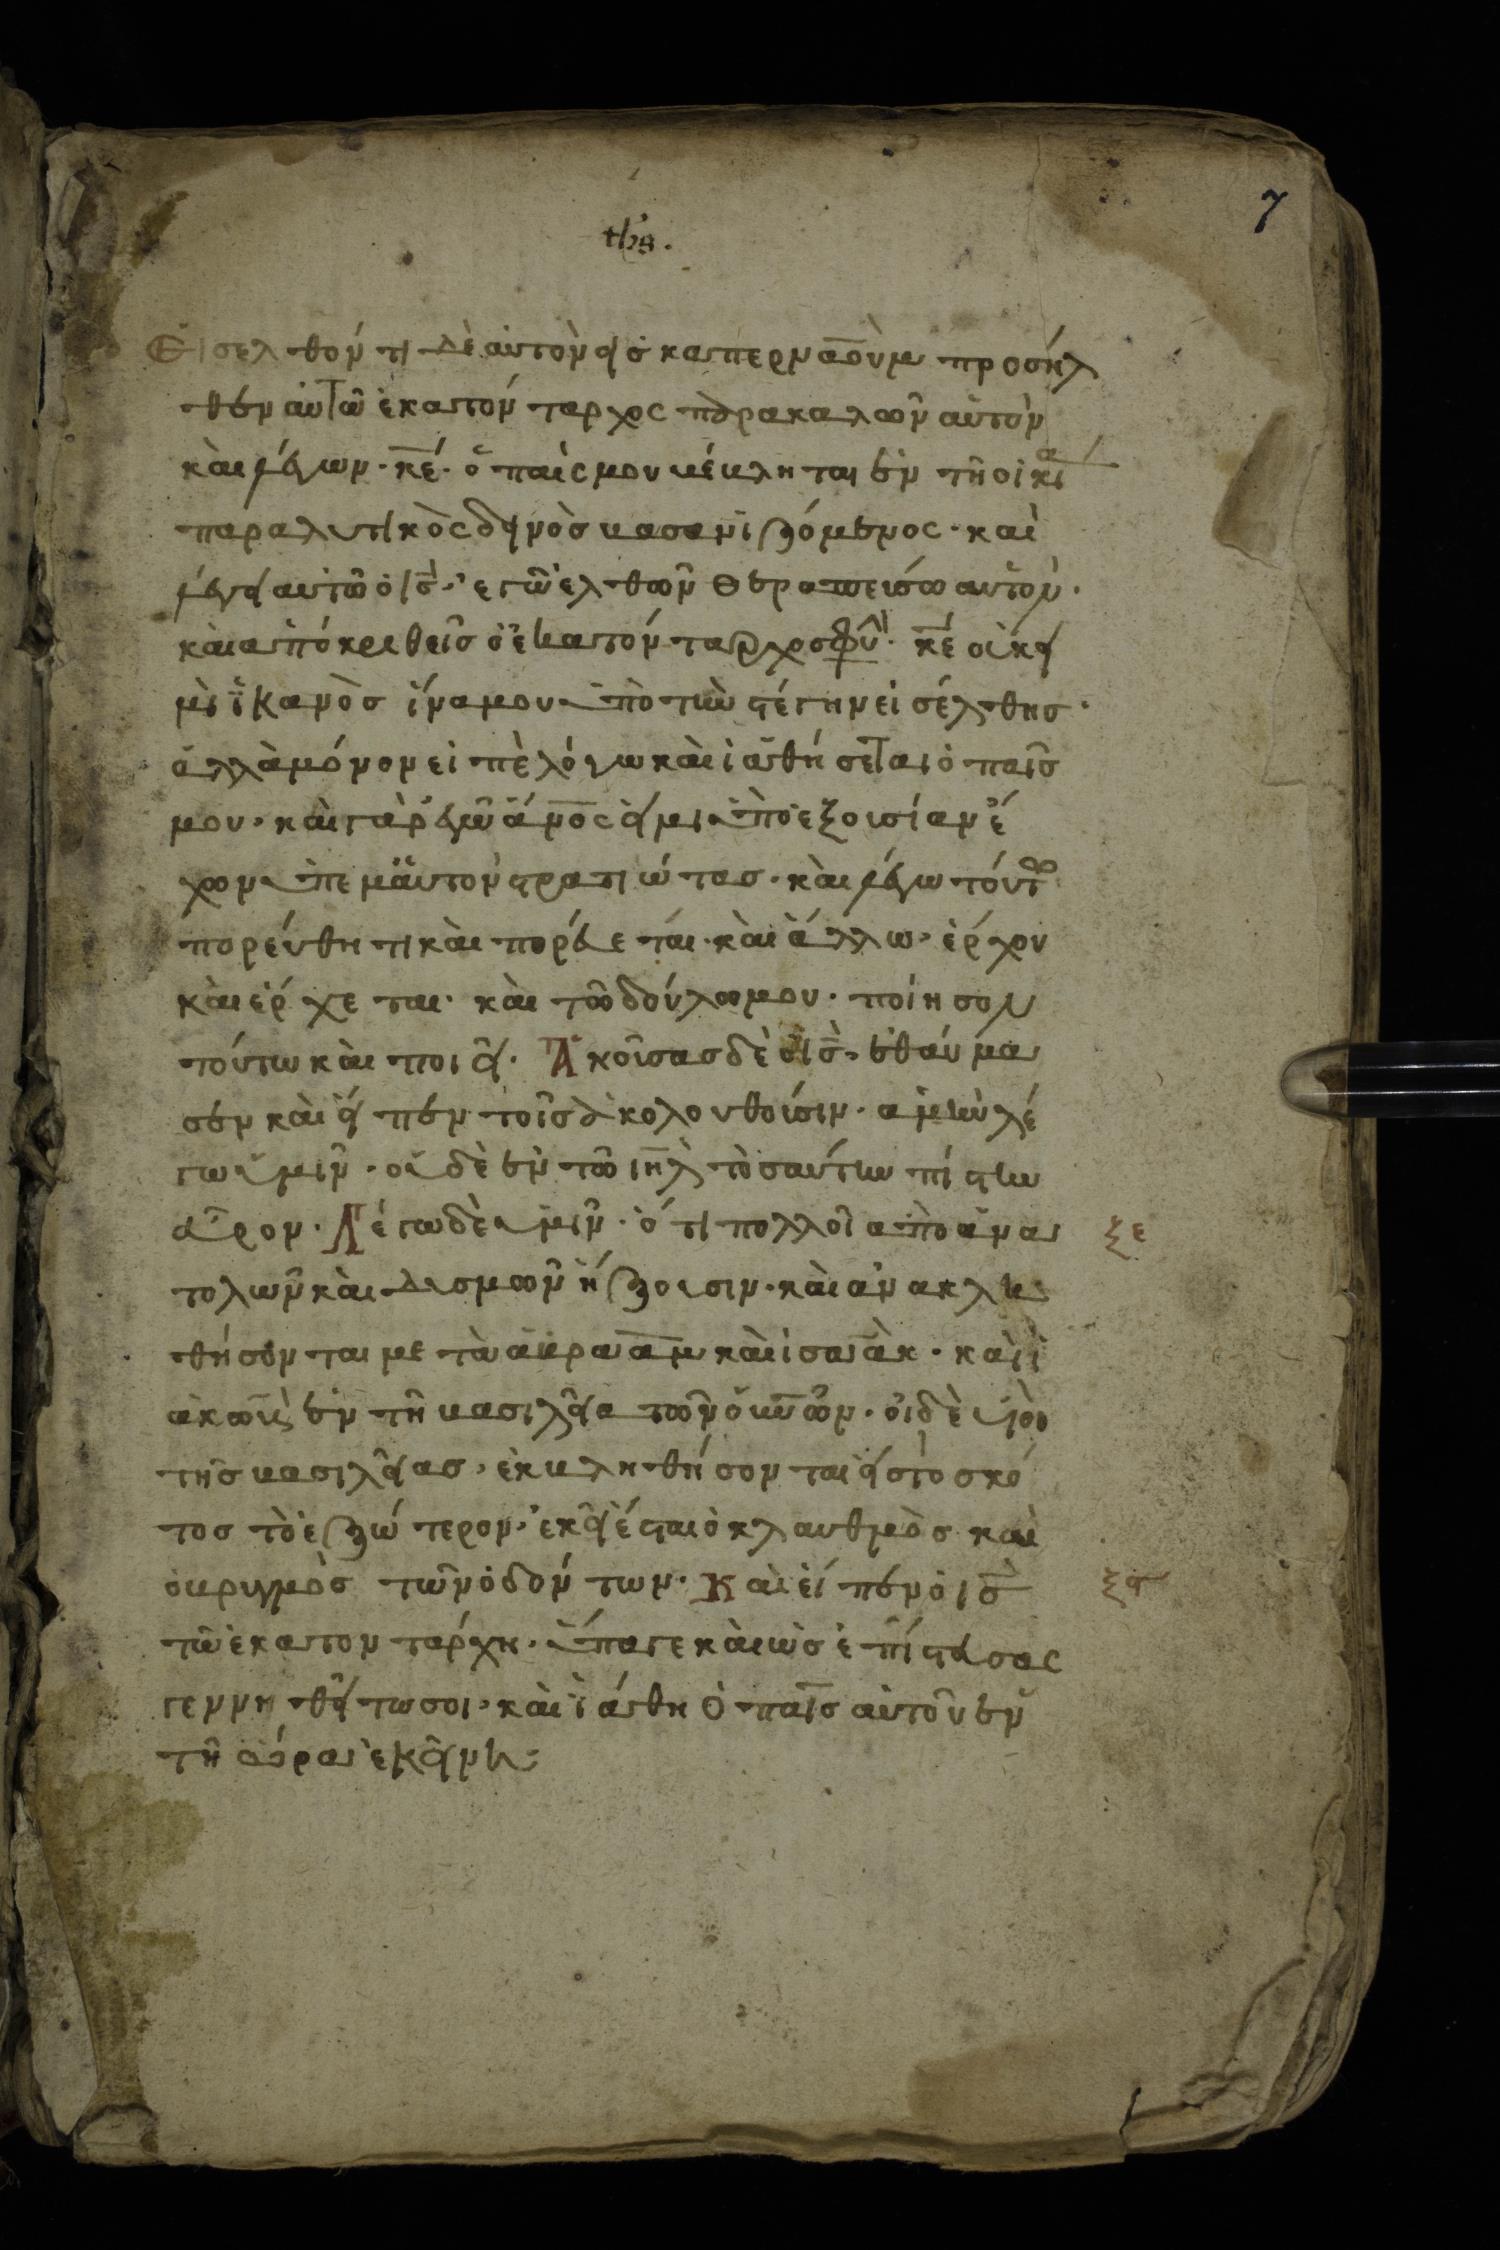 7
Εἰσελθόντι δὲ αὐτὸν εἰσ καπερναοὺμ προσῆλ
θεν αὐτῶ ἑκατόνταρχος παρακαλῶν αὐτὸν
καὶ λέγων· κε· ὁ παῖς μου βέβληται ἐν τῆ οἰκία
παραλυτικὸς δεινὸσ βασανιζόμενος· καὶ
λέγει αὐτῶ ὁ ισ· ἐγὼ ἐλθὼν θεραπεύσω αὐτόν·
καὶ ἀπόκριθεὶσ ὁ ἑκατόνταρχοσ ἔφη· κε οὐκ εἰ
μὶ ἱκανὸσ ἵνα μου ὑπὸ τὴν στέγην εἰσέλθησ·
ἀλλὰ μόνον εἰπὲ λόγω καὶ ἰαθήσεται ὁ παῖσ
μου· καὶ γὰρ ἐγὼ ἄνος εἰμι ὑπὸ ἐξουσίαν ἔ
χον ὑπ ἐμαυτὸν στρατιώτασ· καὶ λέγω τούτω
πορεύθητι καὶ πορεύεται· καὶ ἄλλω· ἔρχου
καὶ ἔρχεται· καὶ τῶ δούλω μου· ποίησον
τούτω καὶ ποιεῖ· Ἀκούσασ δὲ ὁ ισ· ἐθαύμα
σεν καὶ εἶπεν τοῖσ ἀκολουθοῦσιν· ἀμὴν λέ
γω ὑμῖν· οὐδὲ ἐν τῶ ιηλ τοσαύτην πίστιν
εὗρον· Λέγω δὲ ὑμῖν· ὅτι πολλοὶ ἀπὸ ἀνα
ξε
τολῶν καὶ δυσμῶν ἥξουσιν· καὶ ἀνακλη
θήσονται μετὰ ἀβραὰμ καὶ ἰσαὰκ· καὶ ἰ
ακὼβ ἐν τῆ βασιλεία τῶν οὐνῶν· οἱ δὲ υἱοὶ
τῆσ βασιλείασ· ἐκβληθήσονται εἰσ τὸ σκό
τοσ τὸ ἐξώτερον· ἐκεῖ ἔσται ὁ κλαυθμὸσ καὶ
ὁ βρυγμὸσ τῶν ὀδόντων· Καὶ εἶπεν ὁ ισ
ξϛ
τῶ ἑκατοντάρχη· ὕπαγε καὶ ὡσ ἐπίστευσας
γεννηθείτω σοι· καὶ ἰάθη ὁ παῖσ αὐτοῦ ἐν
τῆ ὥρα ἐκείνη: